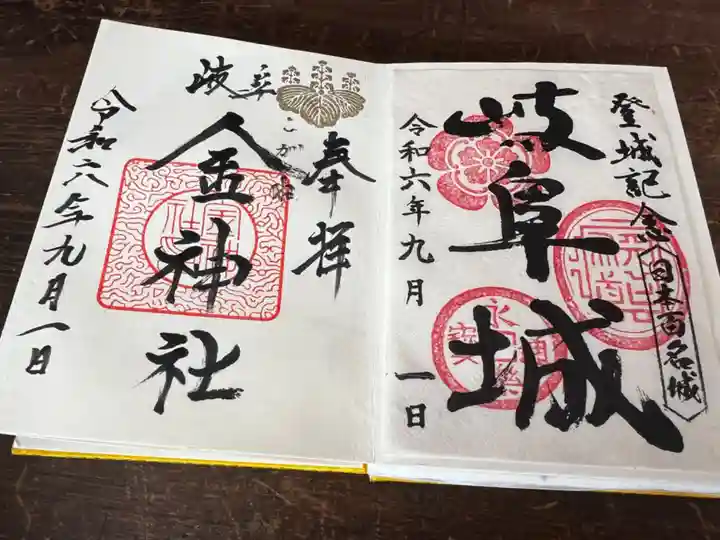 登城記念
日本百名城
岐阜城
令和六年九月一日
永樂通寳
奉拝
岐阜
こがね
金神社
令和六年九月一日